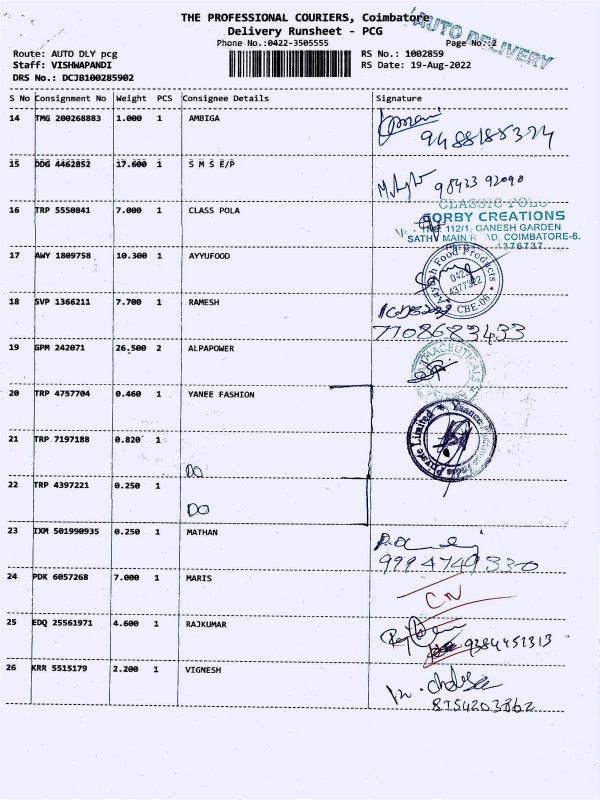 THE PROFESSIONAL COURIERS, Coimbatore
Delivery Runsheet - PCG
AUTO DELIVERY
Phone No.:0422-3505555
Page No.:2
Route: AUTO DLY pcg
RS No.: 1002859
Staff: VISHWAPANDI
RS Date: 19-Aug-2022
DRS No.: DCJB100285902
S No Consignment No Weight PCS Consignee Details Signature
14 TMG 200268883 1.000 1 AMBIGA
9488185374
15 DDG 4462852 17.600 1 S M S E/P
98423 92090
16 TRP 5550841 7.000 1 CLASS POLA
CLASSIC POLO
SORBY CREATIONS
112/1, GANESH GARDEN
SATHY MAIN COIMBATORE-6.
4376737
17 AWY 1809758 10.300 1 AYYUFOOD
Food Products
0422
4377322
CBE-06
18 SVP 1366211 7.700 1 RAMESH
7708683433
19 GPM 242071 26.500 2 ALPAPOWER
20 TRP 4757704 0.460 1 YANEE FASHION
Yaanee
Private Limited
21 TRP 7197188 0.820 1
DO
22 TRP 4397221 0.250 1
DO
23 IXM 501990935 0.250 1 MATHAN
9994749330
24 PDK 6057268 7.000 1 MARIS
CN
25 EDQ 25561971 4.600 1 RAJKUMAR
9384451313
26 KRR 5515179 2.200 1 VIGNESH
8754203862